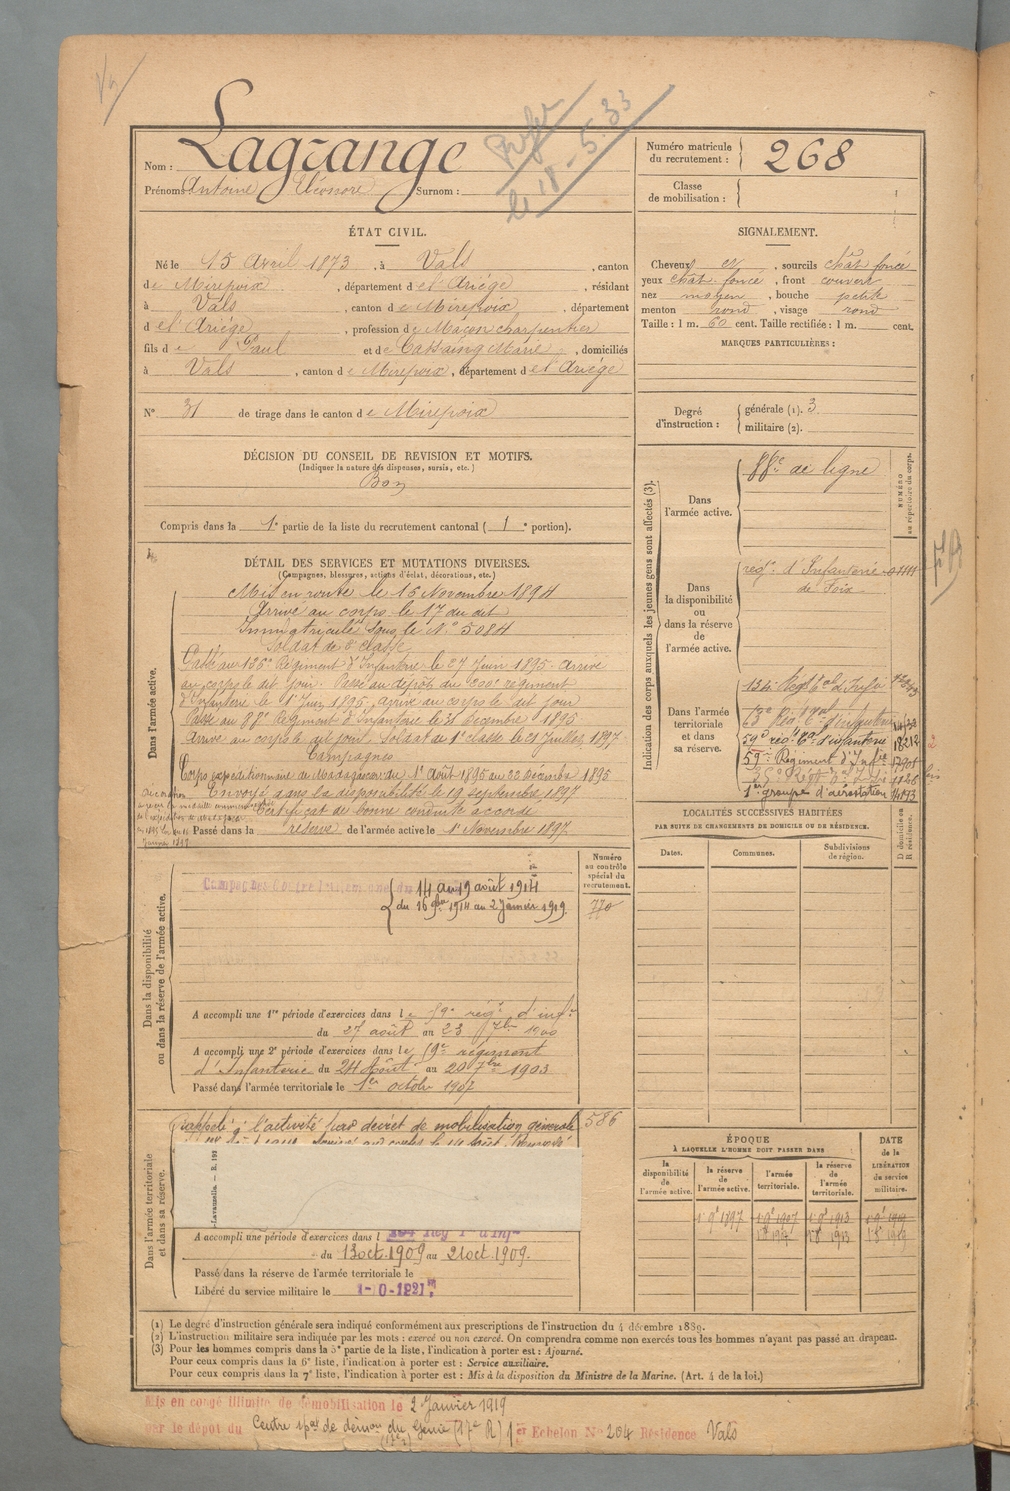 Nom : Lagrange
Prénoms : Antoine Surnom :
le 18-5.33
Numéro matricule
du recrutement : 268
Classe
de mobilisation :
ÉTAT CIVIL.
Né le 15 Avril 1873, à Vals, canton
de Mirepoix, département de l'Ariége, résidant
à Vals, canton de Mirepoix, département
de l'Ariége, profession de Maçon charpentier
fils de Paul et de Cassaing Marie, domiciliés
à Vals, canton de Mirepoix, département de l'Ariége
N° 31 de tirage dans le canton de Mirepoix
SIGNALEMENT.
Cheveux et, sourcils chât foncé
yeux chât. foncé, front couvert
nez moyen, bouche petite
menton rond, visage rond
Taille : 1 m. 60 cent. Taille rectifiée : 1 m. cent.
MARQUES PARTICULIÈRES :
Degré
d'instruction :
générale (1). 3.
militaire (2).
DÉCISION DU CONSEIL DE REVISION ET MOTIFS.
(Indiquer la nature des dispenses, sursis, etc.)
Bon
Compris dans la 1e partie de la liste du recrutement cantonal ( 1 e portion).
DÉTAIL DES SERVICES ET MUTATIONS DIVERSES.
(Campagnes, blessures, actions d'éclat, décorations, etc.)
Dans l'armée active.
Mis en route le 16 Novembre 1894
Arrivé au corps le 17 du dit
Immatriculé sous le N° 5084
Soldat de 2e classe
Passé au 136e Régiment d'Infanterie le 27 Juin 1895 Arrivé
au corps le dit jour. Passé au dépôt du 200e régiment
d'Infanterie le 1er Juin 1895, arrivé au corps le dit jour
Passé au 88e Régiment d'Infanterie le 31 Décembre 1895
Arrivé au corps le dit jour. Soldat de 1e classe le 21 Juillet 1897
Campagnes
Corps expéditionnaire de Madagascar du 1er Août 1895 au 22 Décembre 1895
Envoyé dans la disponibilité le 19 septembre 1897
Certificat de bonne conduite accordé
Passé dans la réserve de l'armée active le 1er Novembre 1897
Indication des corps auxquels les jeunes gens sont affectés (3).
Dans
l'armée active.
88e de ligne
NUMÉRO
au répertoire du corps.
Dans
la disponibilité
ou
dans la réserve
de
l'armée active.
regt. d'Infanterie
de Foix
Dans l'armée
territoriale
et dans
sa réserve.
134 Regt tal d'Infie
59e régt tal d'infanterie 18212
59e Régiment d'Infie 17901
1er groupe d'aérostation
LOCALITÉS SUCCESSIVES HABITÉES
PAR SUITE DE CHANGEMENTS DE DOMICILE OU DE RÉSIDENCE.
Dates. Communes. Subdivisions
de région.
D domicile ou
R résidence.
Dans la disponibilité
ou dans la réserve de l'armée active.
Numéro
au contrôle
spécial du
recrutement.
Campagnes contre l'Allemagne du 14 au 19 août 1914
du 16 9bre 1914 au 2 Janvier 1919
770
A accompli une 1re période d'exercices dans le 59e régt d'inft
du 27 août au 23 7bre 1900
A accompli une 2e période d'exercices dans le régiment
d'Infanterie du 24 Août au 20 7bre 1903
Passé dans l'armée territoriale le 1er octobre 1907
Dans l'armée territoriale
et dans sa réserve.
rappelé à l'activité par décret de mobilisation générale
586
-Lavauzelle. — R. 192
A accompli une période d'exercices dans l
du 13 oct. 1909 au 21 oct. 1909.
Passé dans la réserve de l'armée territoriale le
Libéré du service militaire le 1-10-1921
ÉPOQUE
À LAQUELLE L'HOMME DOIT PASSER DANS
la
disponibilité
de
l'armée active.
la réserve
de
l'armée active.
l'armée
territoriale.
la réserve
de
l'armée
territoriale.
DATE
de la
LIBÉRATION
du service
militaire.
(1) Le degré d'instruction générale sera indiqué conformément aux prescriptions de l'instruction du 4 décembre 1889.
(2) L'instruction militaire sera indiquée par les mots : exercé ou non exercé. On comprendra comme non exercés tous les hommes n'ayant pas passé au drapeau.
(3) Pour les hommes compris dans la 5e partie de la liste, l'indication à porter est : Ajourné.
Pour ceux compris dans la 6e liste, l'indication à porter est : Service auxiliaire.
Pour ceux compris dans la 7e liste, l'indication à porter est : Mis à la disposition du Ministre de la Marine. (Art. 4 de la loi.)
Mis en congé illimité de démobilisation le 2 Janvier 1919
par le dépôt du Centre de démon du Génie (17e R) 1er Echelon N° 264 Résidence Vals